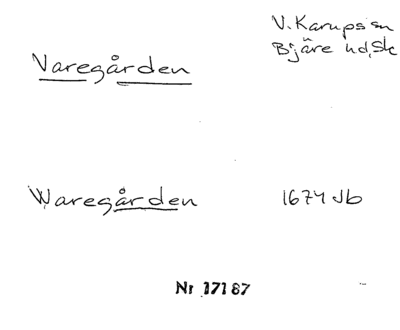 V. Karups sn
Varegården
Bjäre hd, Sk
Waregården 1674 Jb
Nr 17187